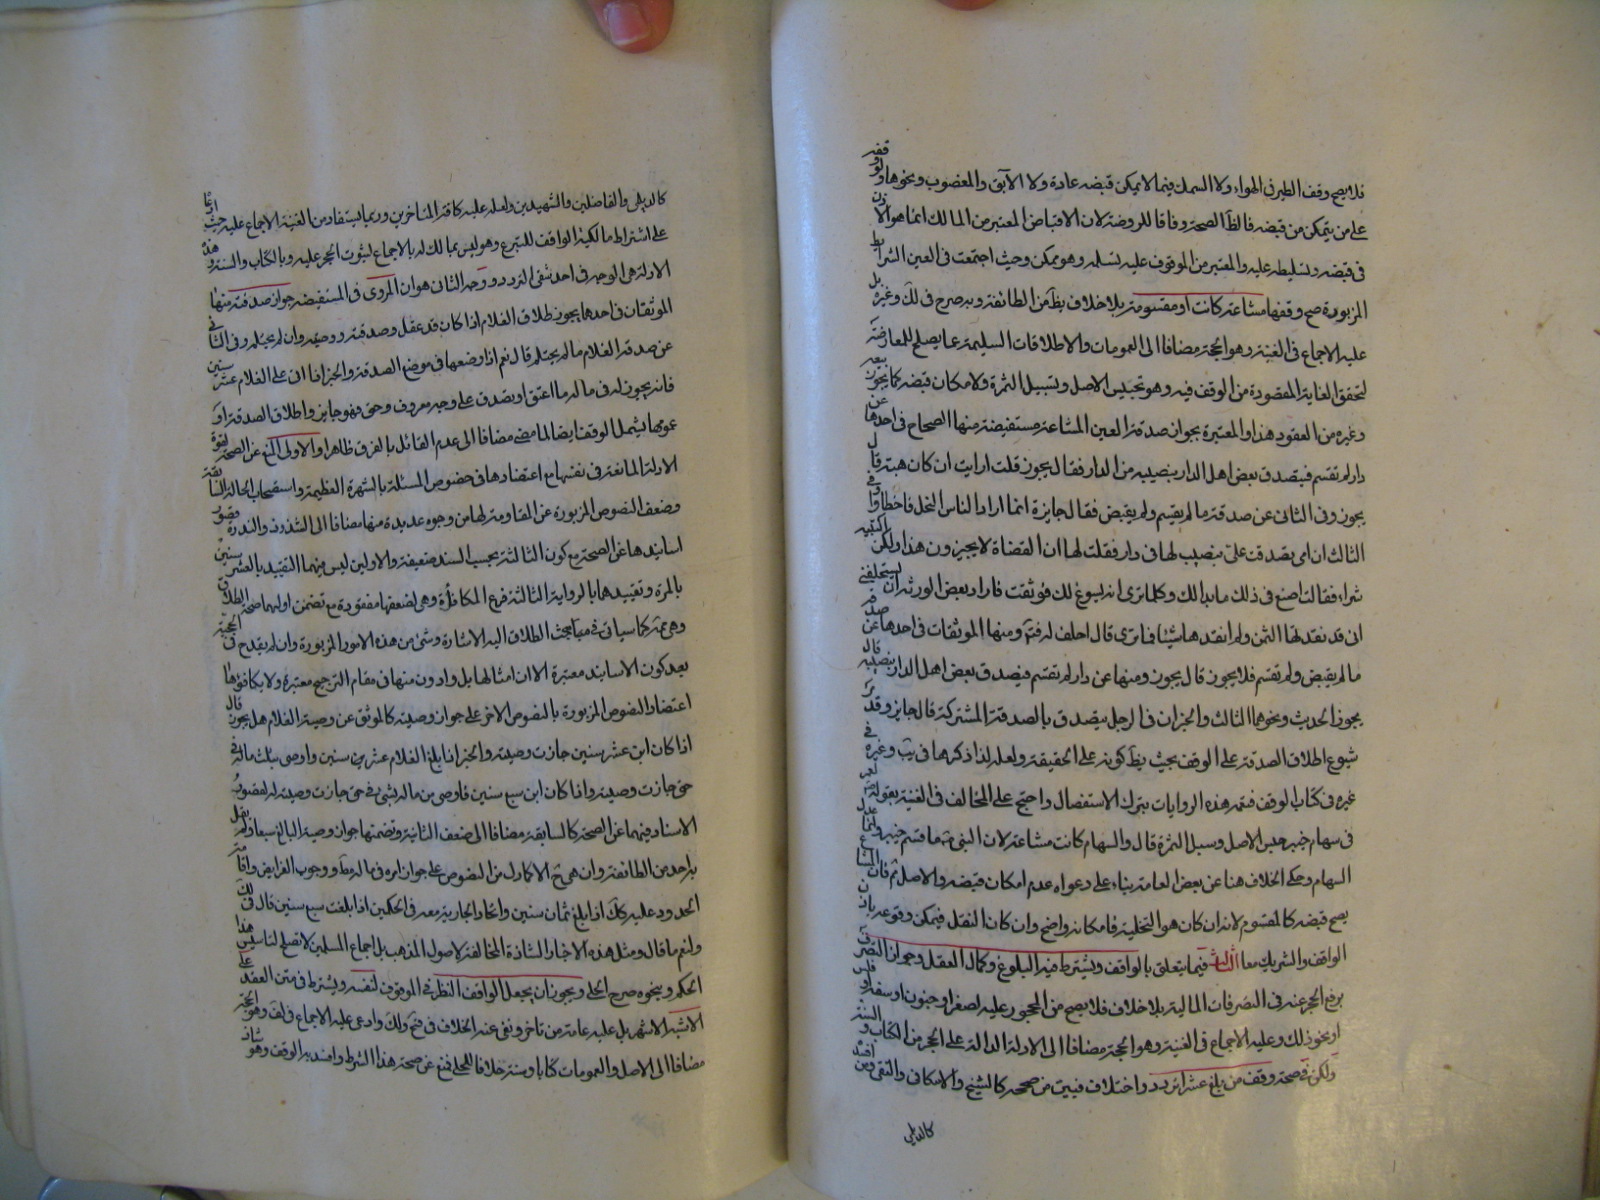 فلا يصح وقف الطير في الهواء ولا السمك فيما لا يمكن قبضه عادة ولا الآبق والمغصوب ونحوها ولو وقفه
على من يتمكن من قبضه فالظ الصحة وفاقا للروضة لان الاقباض المعتبر من المالك انما هو الاذن
في قبضه وتسليطه عليه والمعتبر من الموقوف عليه تسلمه وهو ممكن وحيث اجتمعت في العين الشرائط
المزبورة صح وقفها مشاعة كانت او مقسومة بلا خلاف يظ من الطائفة وبه صرح في لك وغيره بل
عليه الاجماع في الغنية وهو الحجة مضافا الى العمومات والاطلاقات السليمة عما يصلح للمعارضة
لتحقق الغاية المقصودة من الوقف فيه وهو تحبيس الاصل وتسبيل الثمرة ولامكان قبضه كما يجوز بيعه
وغيره من العقود هذا والمعتبرة بجواز صدقة العين المشاعة مستفيضة منها الصحاح في احدها عن
دار لم تقسم فيتصدق بعض اهل الدار بنصيبه من الدار فقال يجوز قلت ارايت ان كان هبة قال
يجوز وفي الثاني عن صدقة ما لم يقسم ولم يقبض فقال جايزة انما اراد الناس النحل فاخطاوا وفي
الثالث ان امي تصدقت علي بنصيب لها في دار فقلت لها ان القضاة لا يجيزون هذا ولكن اكتبيه
شراء فقالت اصنع في ذلك ما بدا لك وكلما ترى انه يسوغ لك فوثقت فاراد بعض الورثة ان يستحلفني
اني قد نقدتها الثمن ولم انقدها شيئا فما ترى قال احلف له فته ومنها الموثقات في احدها عن صدقة
ما لم يقبض ولم تقسم فلا يجوز قال يجوز ومنها عن دار لم تقسم فيصدق بعض اهل الدار بنصيبه قال
يجوز الحديث ونحوهما الثالث والخبران في الرجل يتصدق بالصدقة المشتركة قال جايز وقد
شيوع اطلاق الصدقة على الوقف بحيث يظ كونه على الحقيقة ولعله لذا ذكرها في يب وغيره في
غيره في كتاب الوقف فتعم هذه الروايات بترك الاستفصال واحتج على المخالف في الغنية بقوله لعمر
في سهام خيبر حبس الاصل وسبل الثمرة قال والسهام كانت مشاعة لان النبي ص ما قسم خيبر وانما عدل
السهام وحكي الخلاف هنا عن بعض العامة بناء على دعواه عدم امكان قبضه والاصل ثم فان المشاع
يصح قبضه كالمقسوم لانه ان كان هو التخلية فامكانه واضح وان كان النقل فيمكن وقوعه باذن
الواقف والشريك معا الثالث فيما يتعلق بالواقف ويشترط فيه البلوغ وكمال العقل وجواز التصرف
برفع الحجر عنه في التصرفات المالية بلا خلاف فلا يصح من المحجور عليه لصغر او جنون او سفه او فلس
او نحو ذلك وعليه الاجماع في الغنية وهو الحجة مضافا الى الادلة الدالة على الحجر من الكتاب والسنة
ولكن في صحة وقف من بلغ عشرا تردد واختلاف فبين من صححه كالشيخ والاسكافي والتقي وبين افسده
كالديلمي
كالديلمي والفاضلين والشهيدين ولعله عليه كافة المتاخرين وربما يستفاد من الغنية الاجماع عليه حيث ادعا
على اشتراط مالكية الواقف للتبرع وهو ليس بمالك له بالاجماع لثبوت الحجر عليه وبالكتاب والسنة وهذه
الادلة هي الوجه في احد شقي التردد ووجه الثاني هو ان المروي في المستفيضة جواز صدقته منها
الموثقان في احدها يجوز طلاق الغلام اذا كان قد عقل وصدقته ووصيته وان لم يحتلم وفي الثاني
عن صدقة الغلام ما لم يحتلم قال نعم اذا وضعها في موضع الصدقة والخبر اذا اتى على الغلام عشر سنين
فانه يجوز له في ماله ما اعتق او تصدق على وجه معروف وحق فهو جايز واطلاق الصدقة او
عمومها يشمل الوقف ايضا لما مضى مضافا الى عدم القائل بالفرق ظاهرا والاولى المنع عن الصحة لقوة
الادلة المانعة في نفسها مع اعتضادها في خصوص المسئلة بالشهرة العظيمة واستصحاب الحالة السابقة
وضعف النصوص المزبورة عن المقاومة لها من وجوه عديدة منها مضافا الى الشذوذ والندرة وقصور
اسانيدها عن الصحة مع كون الثالثة بحسب السند ضعيفة والاولين ليس فيهما التقييد بالعشر سنين
بالمرة وتقييدهما بالرواية الثالثة فرع المكافاة وهي لضعفها مفقودة مع تضمن اولهما صحة الطلاق
وهي ممنوعة كما سياتي في مباحث الطلاق اليه الاشارة وشيء من هذه الامور المزبورة وان لم يقدح في الحجية
بعد كون الاسانيد معتبرة الا ان امثالها بل وادون منها في مقام الترجيح معتبرة ولا يكافؤها
اعتضاد النصوص المزبورة بالنصوص الاخر على جواز وصيته كالموثق عن وصية الغلام هل يجوز قال
اذا كان ابن عشر سنين جازت وصيته والخبر اذا بلغ الغلام عشر سنين واوصى بثلث ماله في
حق جازت وصيته واذا كان ابن سبع سنين فاوصى من ماله بشيء في حق جازت وصيته لقصور
الاسناد فيهما عن الصحة كالسابقة مضافا الى ضعف الثانية وتضمنها جواز وصية البالغ سبعا ولم يقل
به احد من الطائفة وان هي ح الا كالدال من النصوص على جواز امره في ماله مط ووجوب الفرايض واقامة
الحدود عليه كك اذا بلغ ثمان سنين واتحاد الجارية معه في الحكمين اذا بلغت سبع سنين قال في لك
ولنعم ما قال ومثل هذه الاخبار الشاذة المخالفة لاصول المذهب بل اجماع المسلمين لا تصلح لتاسيس هذا
الحكم وبنحوه صرح الحلي ويجوز ان يجعل الواقف النظر في الموقوف لنفسه ويشترط في متن العقد على
الاشبه الاشهر بل عليه عامة من تاخر ونفى عنه الخلاف في فتح ولك وادعى عليه الاجماع في لف وهو الحجة
مضافا الى الاصل والعمومات كتابا وسنة خلافا للحلي فمنع عن صحة هذا الشرط وافسد به الوقف وهو شاذ